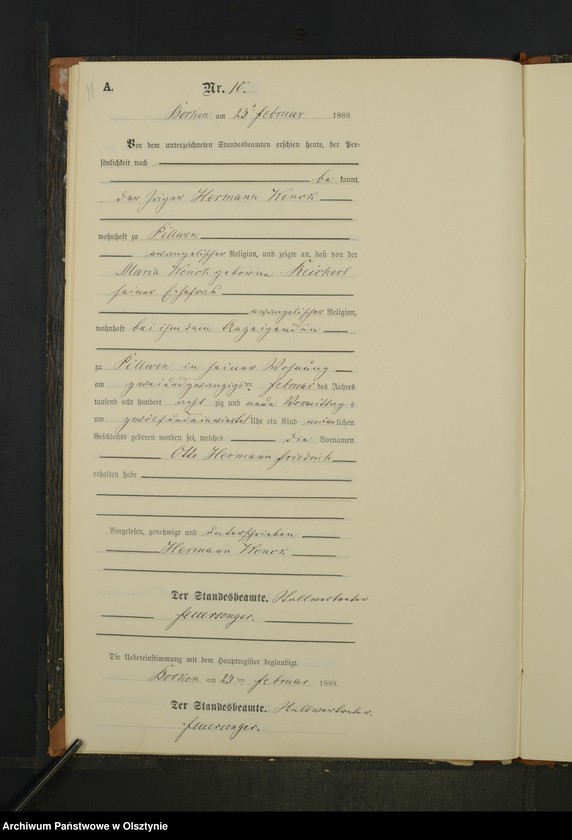 11
A.
Nr. 10.
Borken am 23ᵗ Februar 1889.
Vor dem unterzeichneten Standesbeamten erschien heute, der Per-
sönlichkeit nach
be kannt,
der Hermann Wenck
wohnhaft zu Pillwen
evangelischer Religion, und zeigte an, daß von der
Maria Wenck geborene Reichert
seiner Ehefrau
evangelischer Religion,
wohnhaft bei ihm dem Anzeigenden
zu Pillwen in seiner Wohnung
am zweiundzwanzigsten Februar des Jahres
tausend acht hundert acht zig und neun Vormittag s
um Uhr ein Kind männlichen
Geschlechts geboren worden sei, welches die Vornamen
Otto Hermann Friedrich
erhalten habe
Vorgelesen, genehmigt und unterschrieben
Hermann Wenck
Der Standesbeamte.
Feuersenger.
Die Uebereinstimmung mit dem Hauptregister beglaubigt.
Borken am 23ten Februar 1889.
Der Standesbeamte.
Feuersenger.
Archiwum Państwowe w Olsztynie